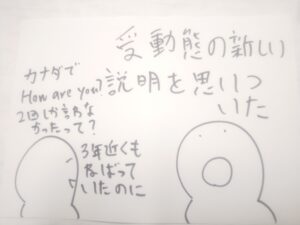 受動態の新しい
説明を思いつ
いた
カナダで
How are you?
2回しか言わな
かったって?
3年近くも
ねばって
いたのに